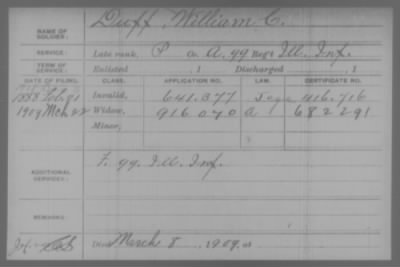 NAME OF SOLDIER: Duff, William C.
SERVICE: Late rank, P Co. A, 99 Reg't Ill. Inf.
TERM OF SERVICE: Enlisted , 1 Discharged , 1
DATE OF FILING. CLASS. APPLICATION NO. LAW. CERTIFICATE NO.
1888 Invalid, 641.377 416.716
1909 Mch 22 Widow, 916 070 a 682291
Minor,
ADDITIONAL SERVICES: F. 99. Ill. Inf.
REMARKS:
Died March 8, 1909, at